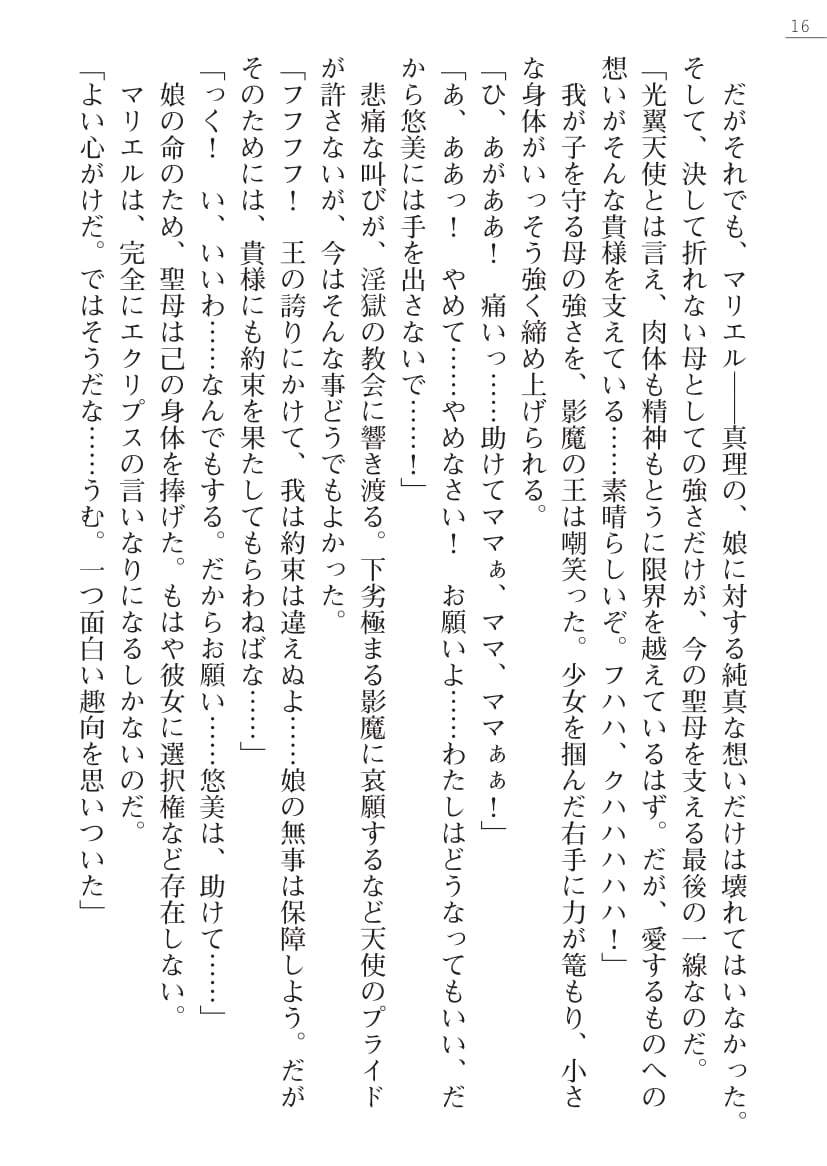 16
だがそれでも、マリエル――真理の、娘に対する純真な想いだけは壊れてはいなかった。
そして、決して折れない母としての強さだけが、今の聖母を支える最後の一線なのだ。
「光翼天使とは言え、肉体も精神もとうに限界を越えているはず。だが、愛するものへの
想いがそんな貴様を支えている……素晴らしいぞ。フハハ、クハハハハハ！」
我が子を守る母の強さを、影魔の王は嘲笑った。少女を掴んだ右手に力が篭もり、小さ
な身体がいっそう強く締め上げられる。
「ひ、あがああ！　痛いっ……助けてママぁ、ママ、ママぁぁ！」
「あ、ああっ！　やめて……やめなさい！　お願いよ……わたしはどうなってもいい、だ
から悠美には手を出さないで……！」
悲痛な叫びが、淫獄の教会に響き渡る。下劣極まる影魔に哀願するなど天使のプライド
が許さないが、今はそんな事どうでもよかった。
「フフフフ！　王の誇りにかけて、我は約束は違えぬよ……娘の無事は保障しよう。だが
そのためには、貴様にも約束を果たしてもらわねばな……」
「っく！　い、いいわ……なんでもする。だからお願い……悠美は、助けて……」
娘の命のため、聖母は己の身体を捧げた。もはや彼女に選択権など存在しない。
マリエルは、完全にエクリプスの言いなりになるしかないのだ。
「よい心がけだ。ではそうだな……うむ。一つ面白い趣向を思いついた」